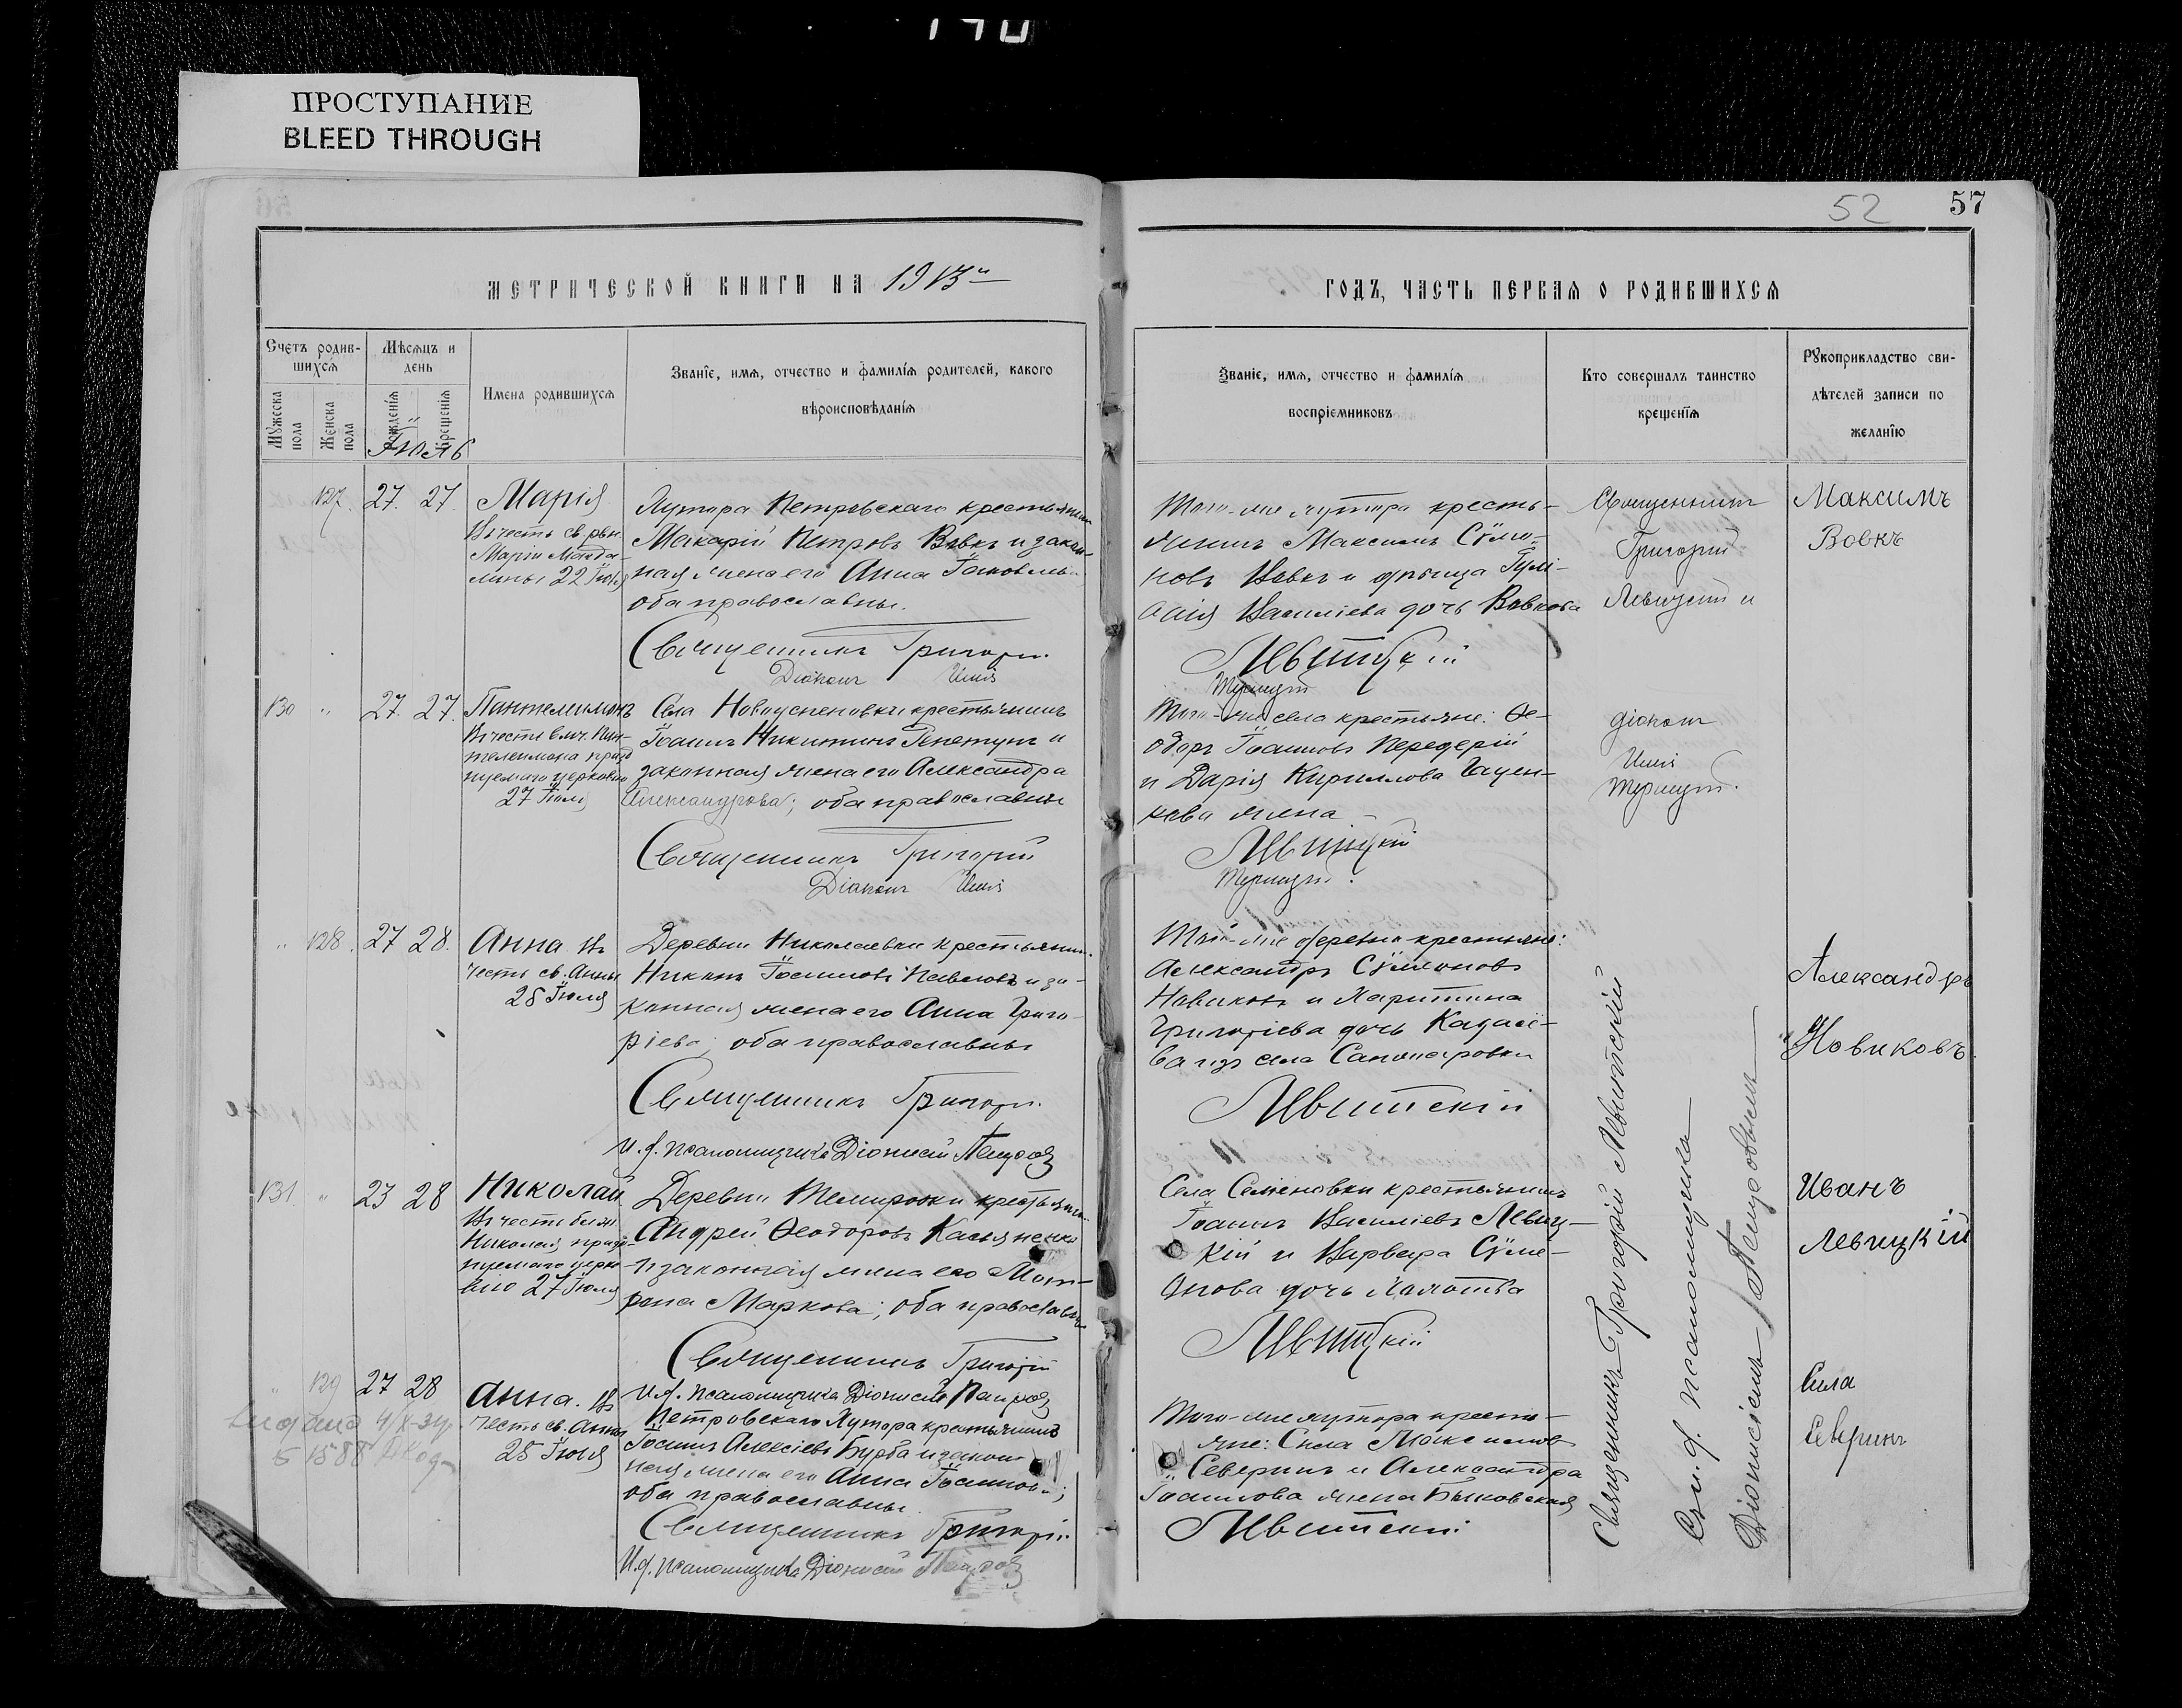 140
ПРОСТУПАНИЕ
BLEED THROUGH
52
57
МЕТРИЧЕСКОЙ КНИГИ НА 1913й
ГОДЪ, ЧАСТЬ ПЕРВАЯ О РОДИВШИХСЯ
Счетъ родившихся
Мѣсяцъ и день
Имена родившихся
Званіе, имя, отчество и фамилія родителей, какого
вѣроисповѣданія
Мужеска пола
Женска пола
рожденія
крещенія
Іюль
Званіе, имя, отчество и фамилія
воспріемниковъ
Кто совершалъ таинство
крещенія
Рукоприкладство сви-
дѣтелей записи по
желанію
127. 27. 27. Марія
Въ честь св. рвн.
Маріи Магда-
лины 22 Іюля
Хутора Петровскаго крестьянинъ
Макарій Петровъ Вовкъ и закон-
ная жена его Анна Іаковлева
оба православны.
Священникъ Григорій
Діаконъ
Того-же хутора кресть-
янинъ Максимъ Сѵмео-
новъ Вовкъ и дѣвица
Василіева дочь Вовкова
Левитскій
Священникъ
Григорій
Левицкій и
Максимъ
Вовкъ
130 " 27. 27. Пантелимонъ
Въ честь вмч. Пан-
телеимона празд
нуемаго церковію
27 Іюля
Села Новоуспеновки крестьянинъ
Іоаннъ Никитинъ Репетунъ и
законная жена его Александра
Александрова; оба православны
Священникъ Григорій
Діаконъ
Того-же села крестьяне: Ѳе-
одоръ Іоанновъ Передерій
и Дарія Кириллова Гацен-
кова жена
Левицкій
діаконъ
" 128. 27 28. Анна. Въ
честь св. Анны
25 Іюля
Деревни Николаевки крестьянинъ
Никонъ Іоанновъ Павловъ и за-
конная жена его Анна Григо-
ріева; оба православны
Священникъ Григорій
И. д. псаломщика Діонисій
Той-же деревни крестьяне:
Александръ Сѵмеоновъ
Новиковъ и Харитина
Григоріева дочь
ва изъ села
Левитскій
Александръ
Новиковъ.
131. " 23 28 Николай
Въ честь блж.
Николая празд-
нуемаго церко
вію 27 Іюля
Деревни Темировки крестьянинъ
Андрей Ѳеодоровъ Касьяненко
и законная жена его Мот-
рона Маркова; оба православны
Священникъ Григорій
И. д. псаломщика Діонисій
Села Семеновки крестьянинъ
Іоаннъ Василіевъ Левиц-
кій и Варвара Сѵме-
онова дочь
Левитскій
Иванъ
Левицкій
" 129 27 28 Анна. Въ
честь св. Анны
25 Іюля
Петровскаго Хутора крестьянинъ
Іоаннъ Алексіевъ Бурба и закон-
ная жена его Анна Іоаннова;
оба православны.
Священникъ Григорій
И. д. псаломщика Діонисій
Того-же хутора кресть-
яне: Сила Максимовъ
Северинъ и Александра
Іоаннова жена Быковская
Левитскій
Сила
Северинъ
Священникъ Григорій Левитскій
Съ и. д. псаломщика
Діонисіемъ